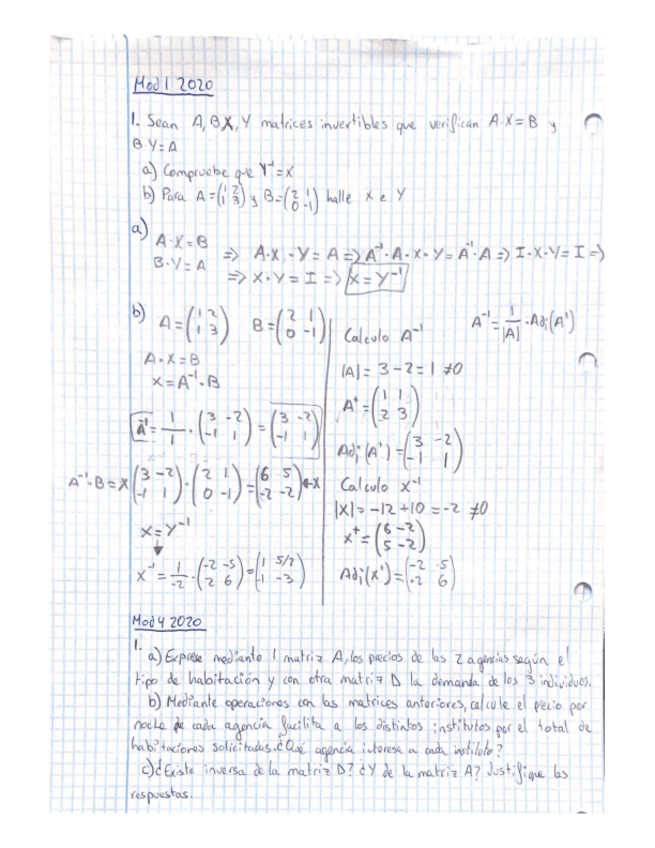 Mod 1 2020
1. Sean A, B, X, Y matrices invertibles que verifican A·X=B y
B Y=A
a) Compruebe que Y⁻¹=X
b) Para A=(1 2; 1 3) y B=(2 1; 0 -1) halle X e Y
a) A·X=B
B·Y=A
=> A·X·Y=A => A⁻¹·A·X·Y=A⁻¹·A => I·X·Y=I =>
=> X·Y=I => X=Y⁻¹
b) A=(1 2; 1 3) B=(2 1; 0 -1)
A·X=B
X=A⁻¹·B
A⁻¹=1/1·(3 -2; -1 1)=(3 -2; -1 1)
A⁻¹·B=X (3 -2; -1 1)·(2 1; 0 -1)=(6 5; -2 -2)←X
X=Y⁻¹
↓
X⁻¹=1/-2·(-2 -5; 2 6)=(1 5/2; -1 -3)
Calculo A⁻¹
A⁻¹=1/|A|·Adj(Aᵗ)
|A|=3-2=1 ≠0
Aᵗ=(1 1; 2 3)
Adj(Aᵗ)=(3 -2; -1 1)
Calculo X⁻¹
|X|=-12+10=-2 ≠0
Xᵗ=(6 -2; 5 -2)
Adj(Xᵗ)=(-2 -5; -2 6)
Mod 4 2020
1.
a) Exprese mediante 1 matriz A, los precios de las 2 agencias según el
tipo de habitación y con otra matriz D la demanda de los 3 individuos.
b) Mediante operaciones con las matrices anteriores, calcule el precio por
noche de cada agencia facilita a los distintos institutos por el total de
habitaciones solicitadas. ¿Qué agencia interesa a cada instituto?
c) ¿Existe inversa de la matriz D? ¿Y de la matriz A? Justifique las
respuestas.